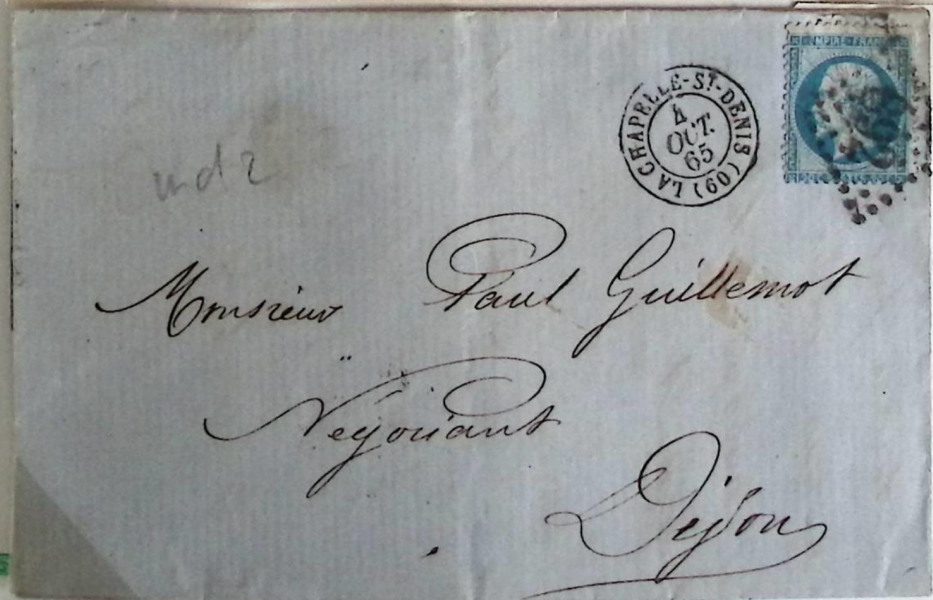 EMPIRE FRANC
LA CHAPELLE-ST-DENIS (60)
4
OCT.
65
Monsieur Paul Guillemot
Négociant
Dijon